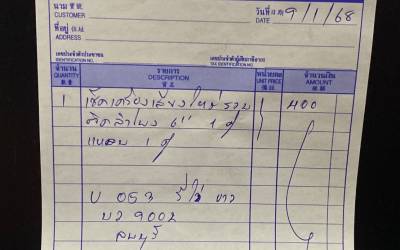 นาม ชื่อ
CUSTOMER
วันที่ 9/1/68
DATE
ที่อยู่
ADDRESS
เลขประจำตัวประชาชน
IDENTIFICATION NO.
เลขประจำตัวผู้เสียภาษีอากร
TAX IDENTIFICATION NO.
จำนวน รายการ หน่วยละ จำนวนเงิน
QUANTITY DESCRIPTION UNIT PRICE AMOUNT
1 เช็คเครื่องเสียงใหม่ รวม 400
ติดลำโพง 6" 1 คู่
แหลม 1 คู่
บ 053 ขาว
บว 9002
ลพบุรี